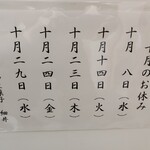 十月のお休み
十月 八日(水)
十月十四日(火)
十月二三日(木)
十月二四日(金)
十月二九日(水)